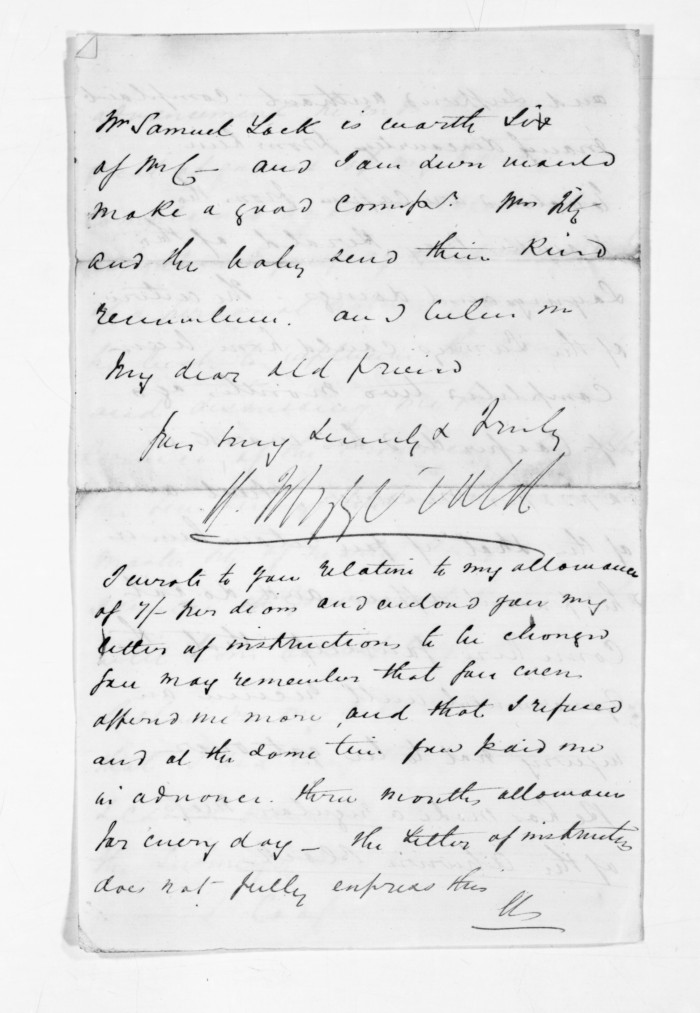 Mr Samuel Lock is worth Six
of McC— and I am sure would
make a good Comr. Mrs Fitz
and the baby send their kind
remembrance. and believe me
My dear old friend
Yours very sincerely & Truly
W. Fitzgerald
I wrote to you relative to my allowance
of 7/- per diem and enclosed you my
letter of instructions to be changed
you may remember that you even
offered me more, and that I refused
and at the same time you paid me
in advance. three months allowance
for every day— the letter of instructions
does not fully express this